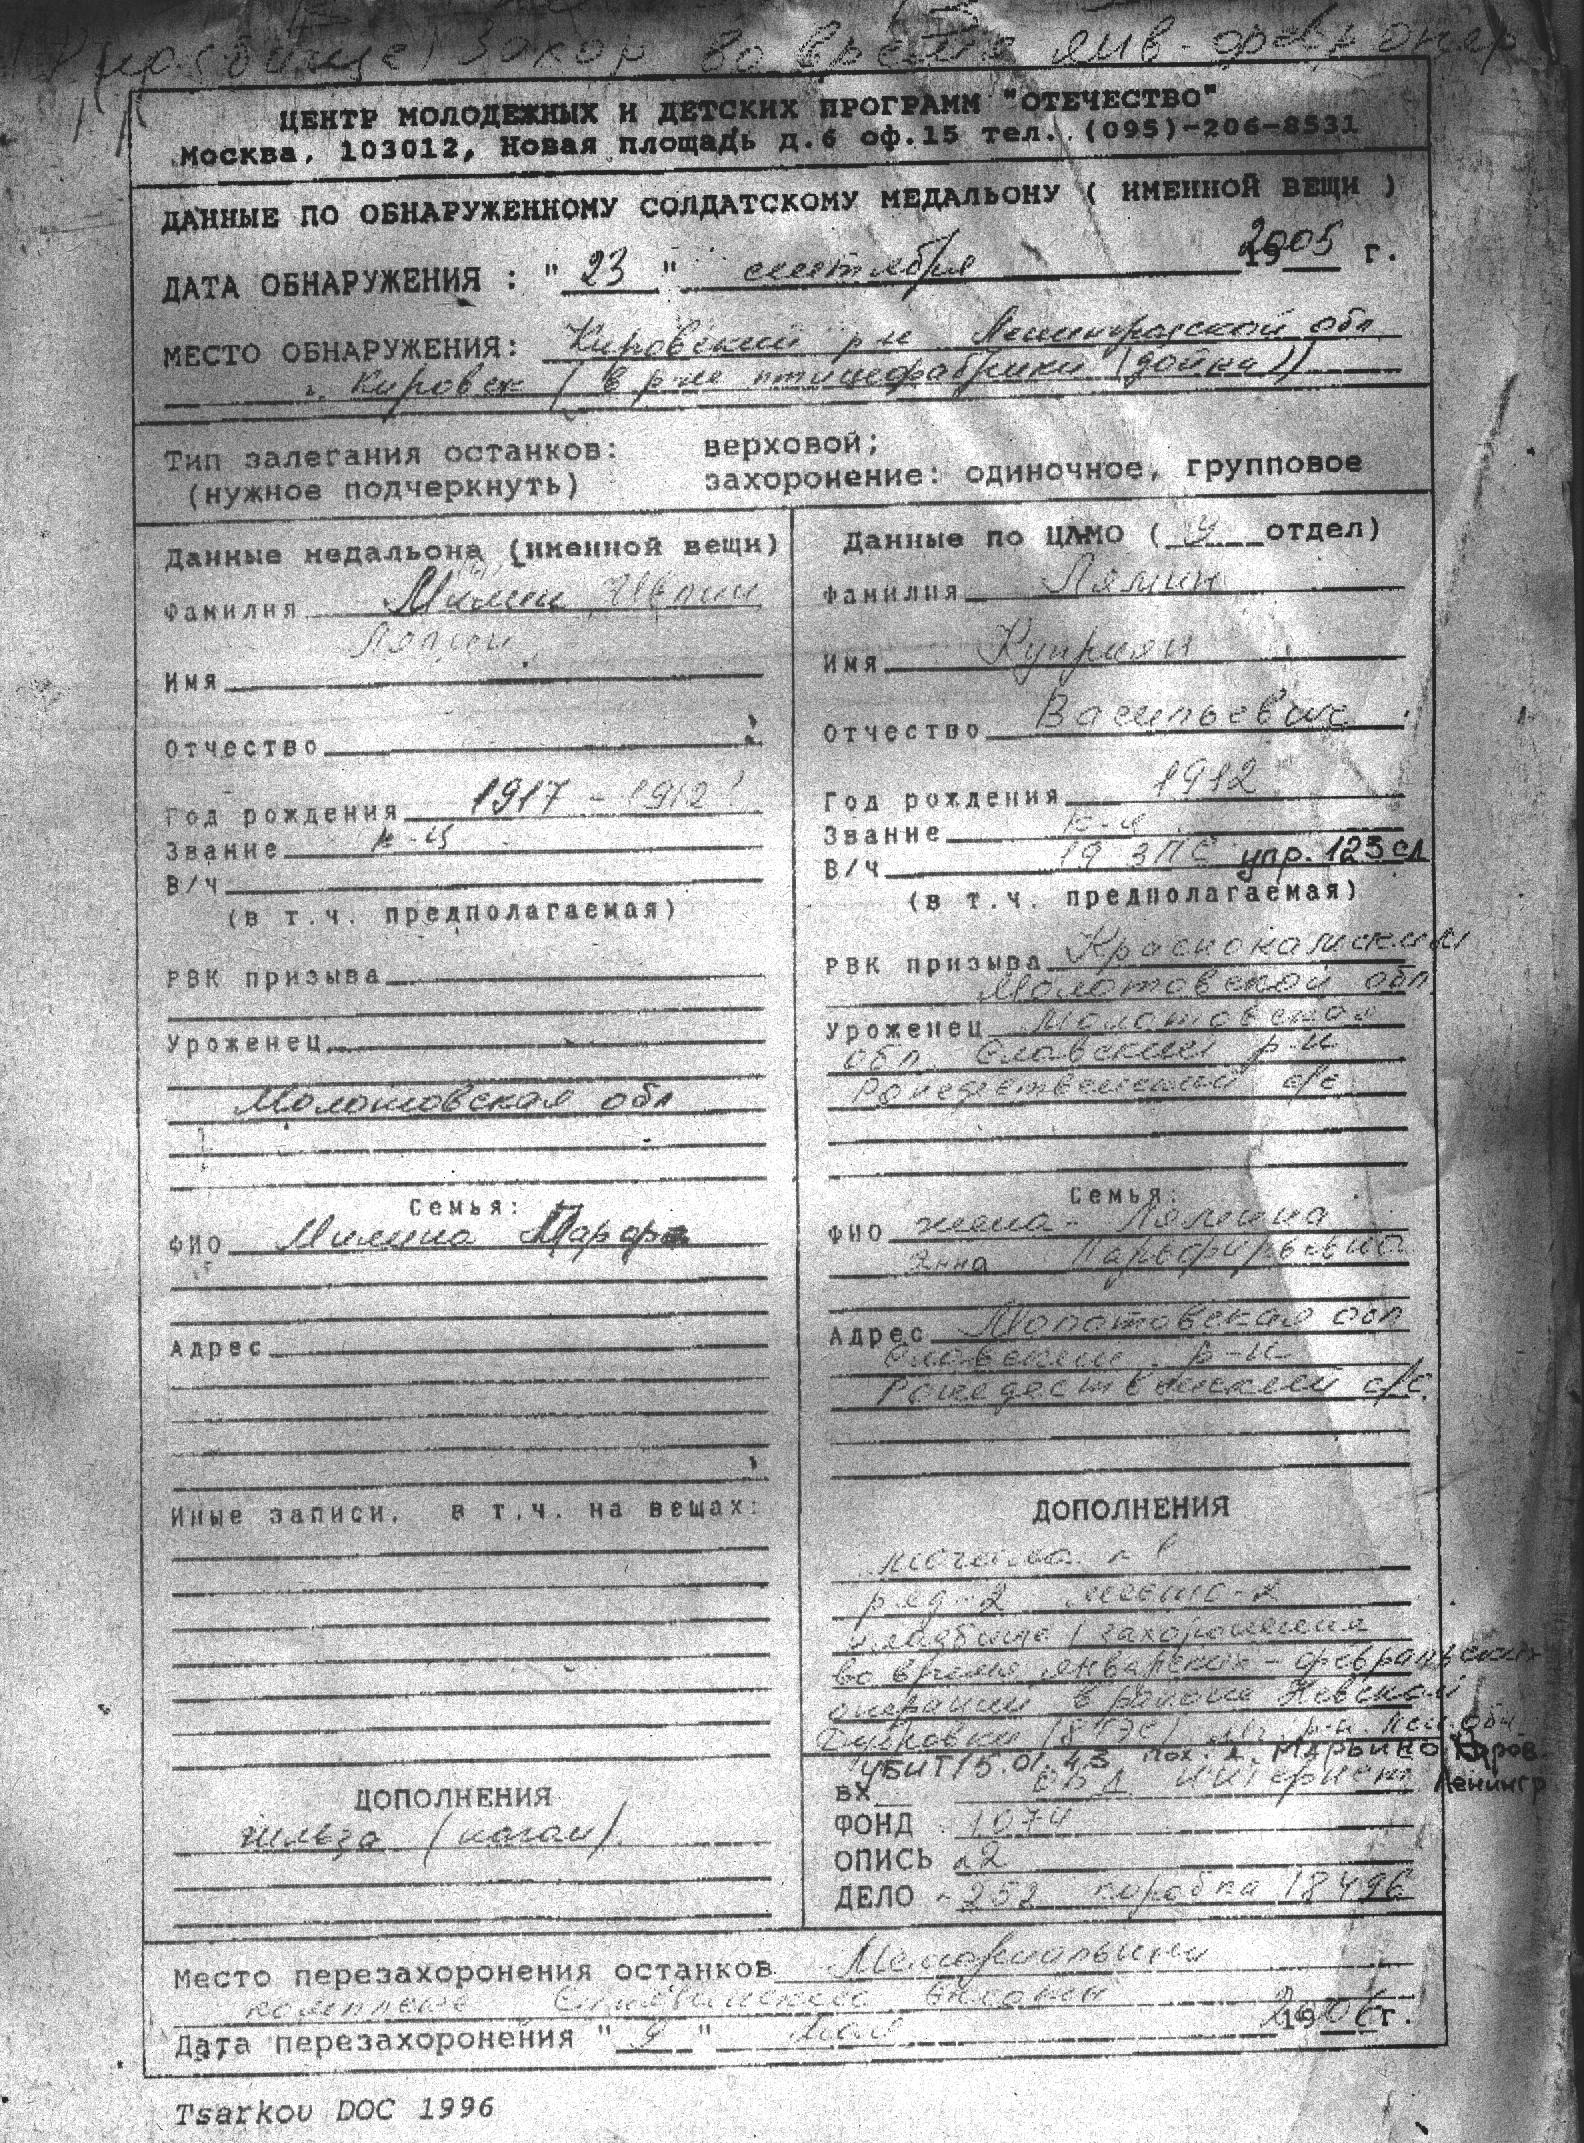 Закор во время янв-
ЦЕНТР МОЛОДЕЖНЫХ И ДЕТСКИХ ПРОГРАММ "ОТЕЧЕСТВО"
Москва, 103012, Новая площадь д.6 оф.15 тел. (095)-206-8531
ДАННЫЕ ПО ОБНАРУЖЕННОМУ СОЛДАТСКОМУ МЕДАЛЬОНУ ( ИМЕННОЙ ВЕЩИ )
ДАТА ОБНАРУЖЕНИЯ : "23" сентября 2005 г.
МЕСТО ОБНАРУЖЕНИЯ: Кировский р-н Ленинградской обл
г. Кировск (в р-не птицефабрики (дойка))
Тип залегания останков: верховой;
(нужное подчеркнуть) захоронение: одиночное, групповое
Данные медальона (именной вещи)
Фамилия Милин
Имя
Отчество
Год рождения 1917 - 1912
Звание к-ц
В/Ч
(в т.ч. предполагаемая)
РВК призыва
Уроженец
Молотовская обл
Семья:
ФИО Милина
Адрес
Иные записи, в т.ч. на вещах:
ДОПОЛНЕНИЯ
гильза (наган)
Данные по ЦАМО (отдел)
Фамилия Лямин
Имя Куприян
Отчество Васильевич
Год рождения 1912
Звание к-ц
В/Ч 19 ЗПС упр. 123 сд
(в т.ч. предполагаемая)
РВК призыва Краснокамский
Молотовской обл
Уроженец Молотовская
обл. р-н
Рождественский с/с
Семья:
ФИО жена - Лямина
Анна Парфирьевна
Адрес Молотовская обл
р-н
Рождественский с/с.
ДОПОЛНЕНИЯ
могила
ряд-2 место-2
кладбище / захоронения
во время январских-февральских
операции в районе Невской
Дубровки (8 ГЭС)
УБИТ 15.01.43 пох. д. Марьино Киров.
Ленингр
ВХ ОБД интернет
ФОНД 1074
ОПИСЬ 2
ДЕЛО 252 коробка 18496
Место перезахоронения останков Мемориальный
комплекс Синявинские высоты
Дата перезахоронения "9" мая 2006 г.
Tsarkov DOC 1996